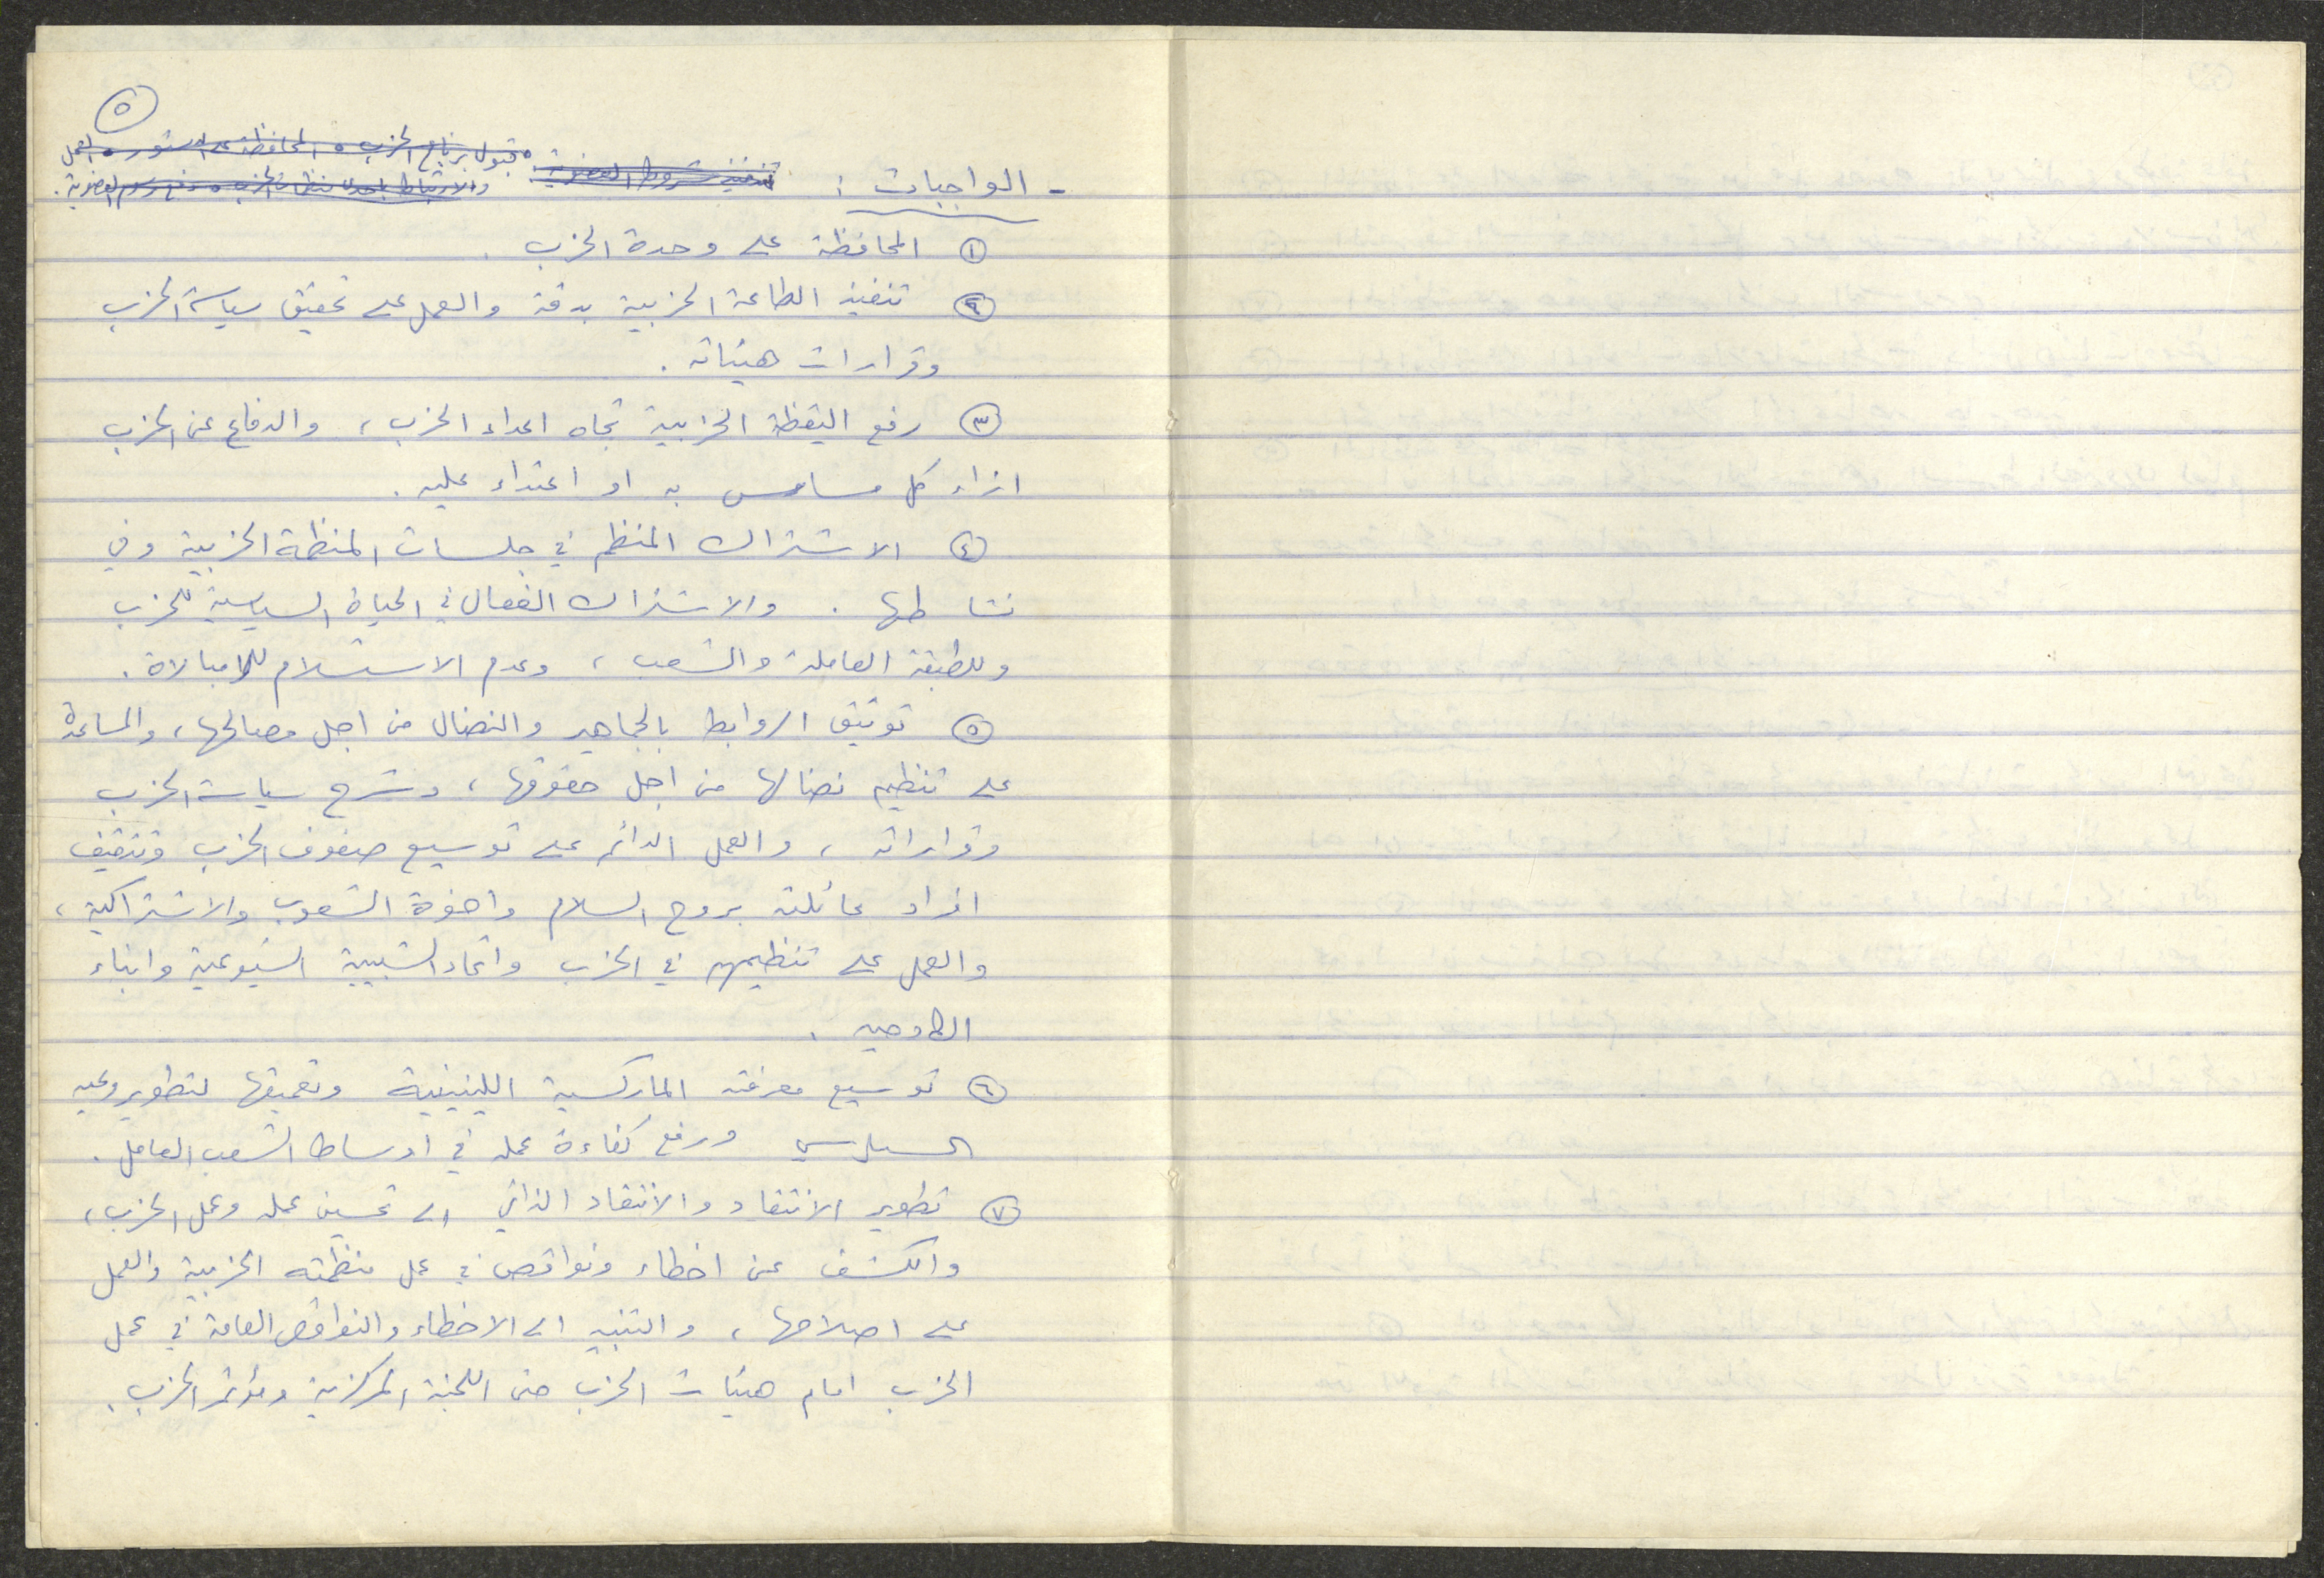 ٥
قبول برنامج الحزب ٥ المحافظة على الدستور ٥ العمل
والارتباط باحدى منظمات الحزب ٥ دفع رسوم العضوية .
- الواجبات : تنفيذ شروط العضوية :
١ المحافظة على وحدة الحزب .
٢ تنفيذ الطاعة الحزبية بدقة والعمل على تحقيق سياسة الحزب
وقرارات هيئاته .
٣ رفع اليقظة الحزبية تجاه اعداء الحزب ، والدفاع عن الحزب
ازاء كل مساس به او اعتداء عليه .
٤ الاشتراك المنظم في جلسات المنظمة الحزبية وفي
نشاطها . والاشتراك الفعال في الحياة السياسية للحزب
وللطبقة العاملة والشعب ، وعدم الاستسلام للامبالاة .
٥ توثيق الروابط بالجماهير والنضال من اجل مصالحها ، والمساعدة
على تنظيم نضالها من اجل حقوقها ، وشرح سياسة الحزب
وقراراته ، والعمل الدائم على توسيع صفوف الحزب وتثقيف
افراد عائلته بروح السلام واخوة الشعوب والاشتراكية ،
والعمل على تنظيمهم في الحزب واتحاد الشبيبة الشيوعية وابناء
الكادحين .
٦ توسيع معرفته الماركسية اللينينية وتعميقها لتطوير وعيه
السياسي ورفع كفاءة عمله في اوساط الشعب العامل .
٧ تطوير الانتقاد والانتقاد الذاتي الى تحسين عمله وعمل الحزب ،
والكشف عن اخطاء ونواقص في عمل منظمته الحزبية والعمل
على اصلاحها ، والتنبيه الى الاخطاء والنواقص العامة في عمل
الحزب امام هيئات الحزب حتى اللجنة المركزية ومؤتمر الحزب .